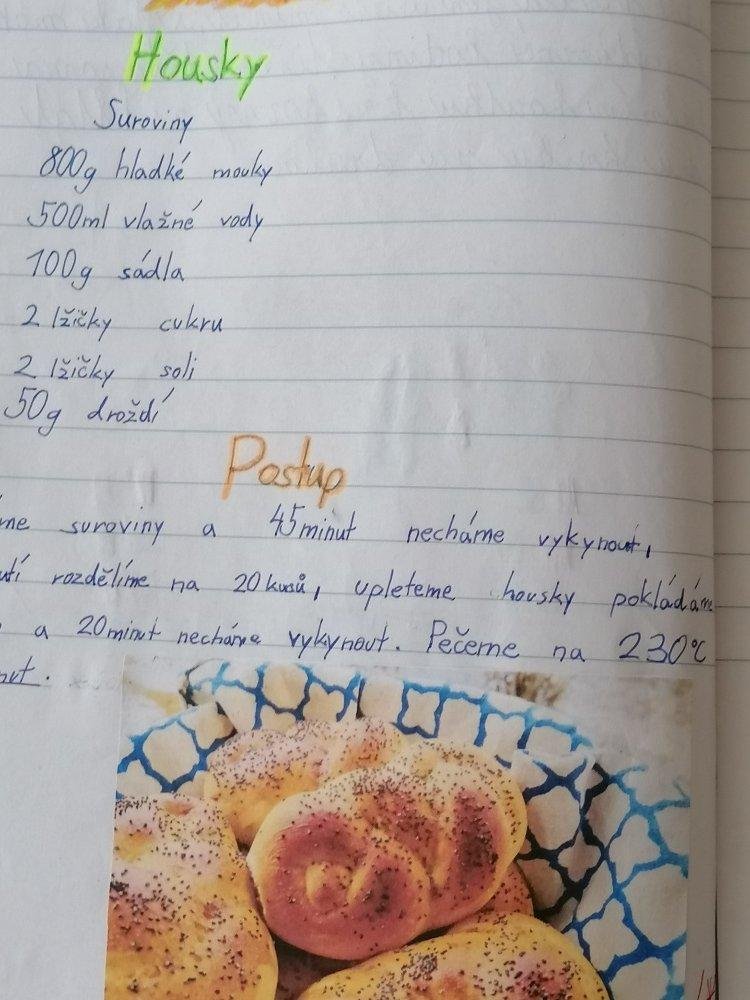 Housky
Suroviny
800g hladké mouky
500ml vlažné vody
100g sádla
2 lžičky cukru
2 lžičky soli
50g droždí
Postup
me suroviny a 45minut necháme vykynout,
utí rozdělíme na 20kusů, upleteme housky pokládáme
a 20minut necháme vykynout. Pečeme na 230°C
nut.